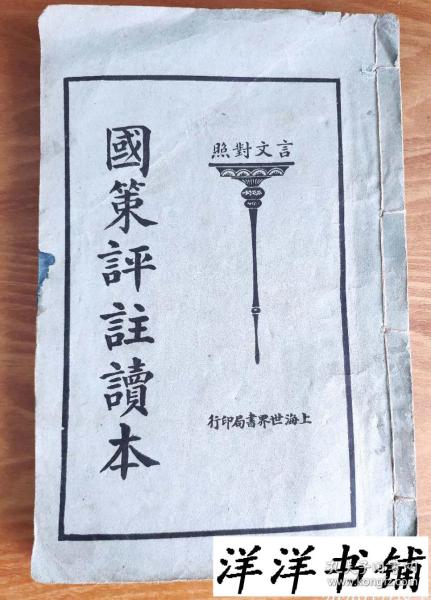 言文對照
國策評註讀本
上海世界書局印行
洋洋书铺